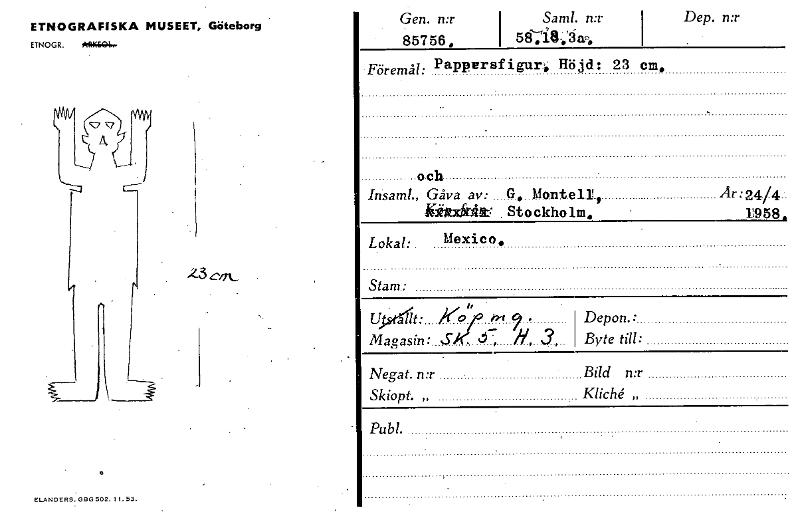 ETNOGRAFISKA MUSEET, Göteborg
ETNOGR. ARKEOL.
23 cm
ELANDERS. GBG 502. 11. 53.
Gen. n:r Saml. n:r Dep. n:r
85756. 58.18.3a.
Föremål: Pappersfigur. Höjd: 23 cm.
och
Insaml., Gåva av: G. Montell, År: 24/4
Köp från: Stockholm. 1958.
Lokal: Mexico.
Stam:
Utställt: Köpmg. Depon.:
Magasin: SK. 5. H. 3. Byte till:
Negat. n:r Bild n:r
Skiopt. „ Kliché „
Publ.